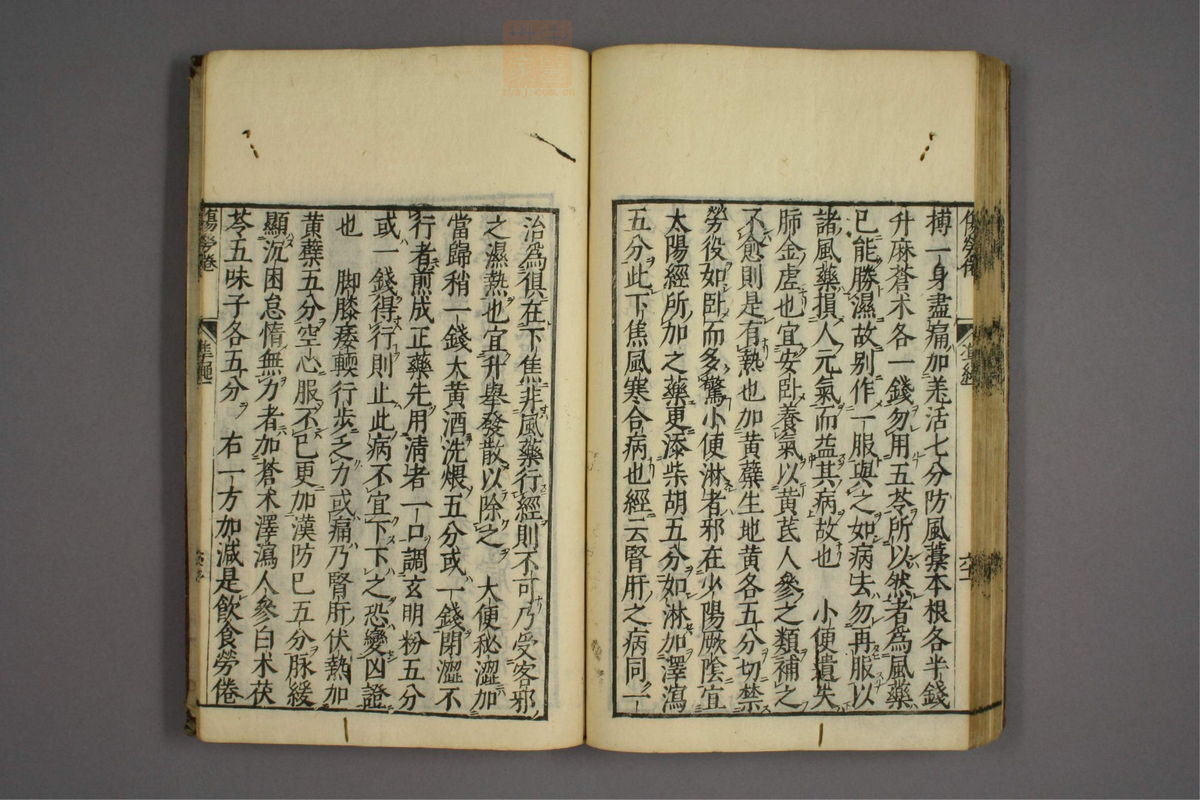 搏一身盡痛加羗活七分防風藁本根各半錢
升麻蒼术各一錢勿用五苓所以然者爲風藥
已能勝濕故别作一服與之如病去勿再服以
諸風藥損人元氣而益其病故也　小便遺失
肺金虚也宜安卧養氣以黄芪人參之類補之
不愈則是有熱也加黄蘗生地黄各五分切禁
勞役如卧而多驚小便淋者邪在少陽厥隂宜
太陽經所加之藥更添柴胡五分如淋加澤瀉
五分此下焦風寒合病也經云腎肝之病同一
治爲俱在下焦非風藥行經則不可乃受客邪
之濕熱也宜升舉發散以除之　大便秘澀加
當歸稍一錢大黄酒洗煨五分或一錢閉澀不
行者煎成正藥先用清者一口調玄明粉五分
或一錢得行則止此病不宜下下之恐變凶證
也　脚膝痿輭行歩乏力或痛乃腎肝伏熱加
黄蘗五分空心服不已更加漢防已五分脉緩
顯沉困怠惰無力者加蒼术澤瀉人參白术茯
苓五味子各五分　右一方加減是飲食勞倦
傷勞卷
準繩